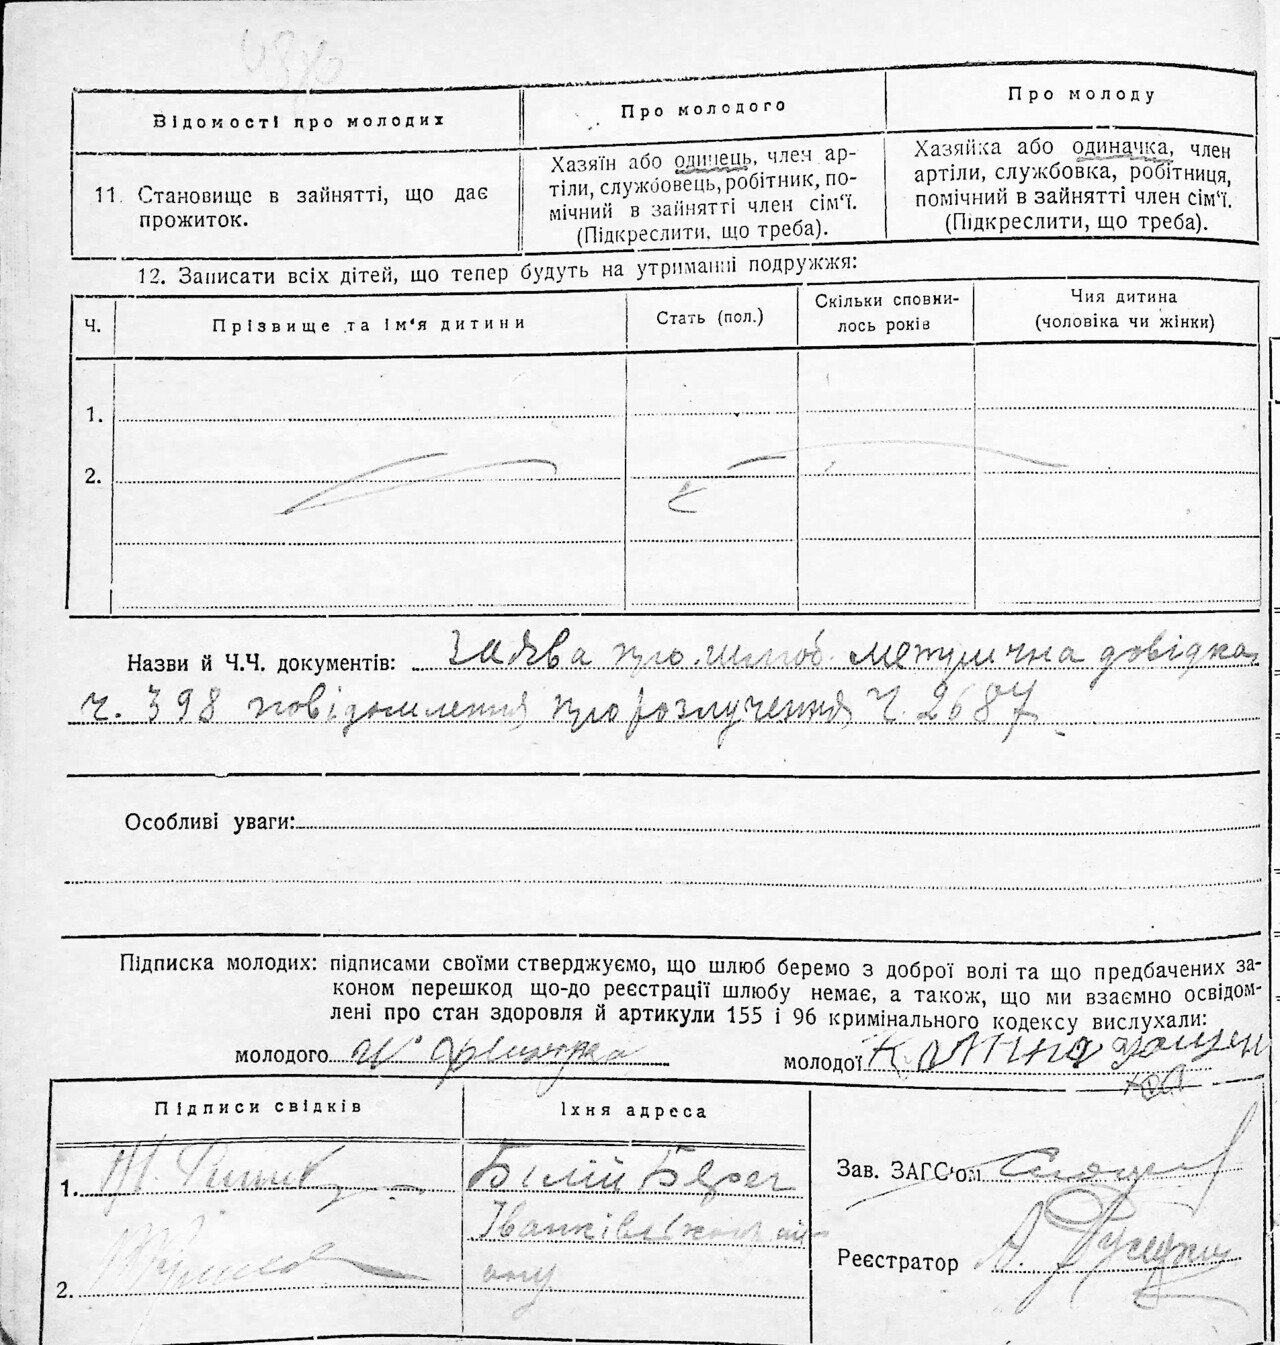 Відомості про молодих
Про молодого
Про молоду
11. Становище в зайнятті, що дає
прожиток.
Хазяїн або одинець, член ар-
тіли, службовець, робітник, по-
мічний в зайнятті член сім'ї.
(Підкреслити, що треба).
Хазяйка або одиначка, член
артіли, службовка, робітниця,
помічний в зайнятті член сім'ї.
(Підкреслити, що треба).
12. Записати всіх дітей, що тепер будуть на утриманні подружжя:
Ч.
Прізвище та ім'я дитини
Стать (пол.)
Скільки сповни-
лось років
Чия дитина
(чоловіка чи жінки)
1.
2.
Назви й Ч.Ч. документів: Заява про шлюб метрична довідка
ч. 398 повідомлення про розлучення ч. 2687
Особливі уваги:
Підписка молодих: підписами своїми стверджуємо, що шлюб беремо з доброї волі та що предбачених за-
коном перешкод що-до реєстрації шлюбу немає, а також, що ми взаємно освідом-
лені про стан здоровля й артикули 155 і 96 кримінального кодексу вислухали:
молодого
молодої
Підписи свідків
Їхня адреса
1.
Білий Берег
Іванківського рай
ону
2.
Зав. ЗАГС'ом
Реєстратор